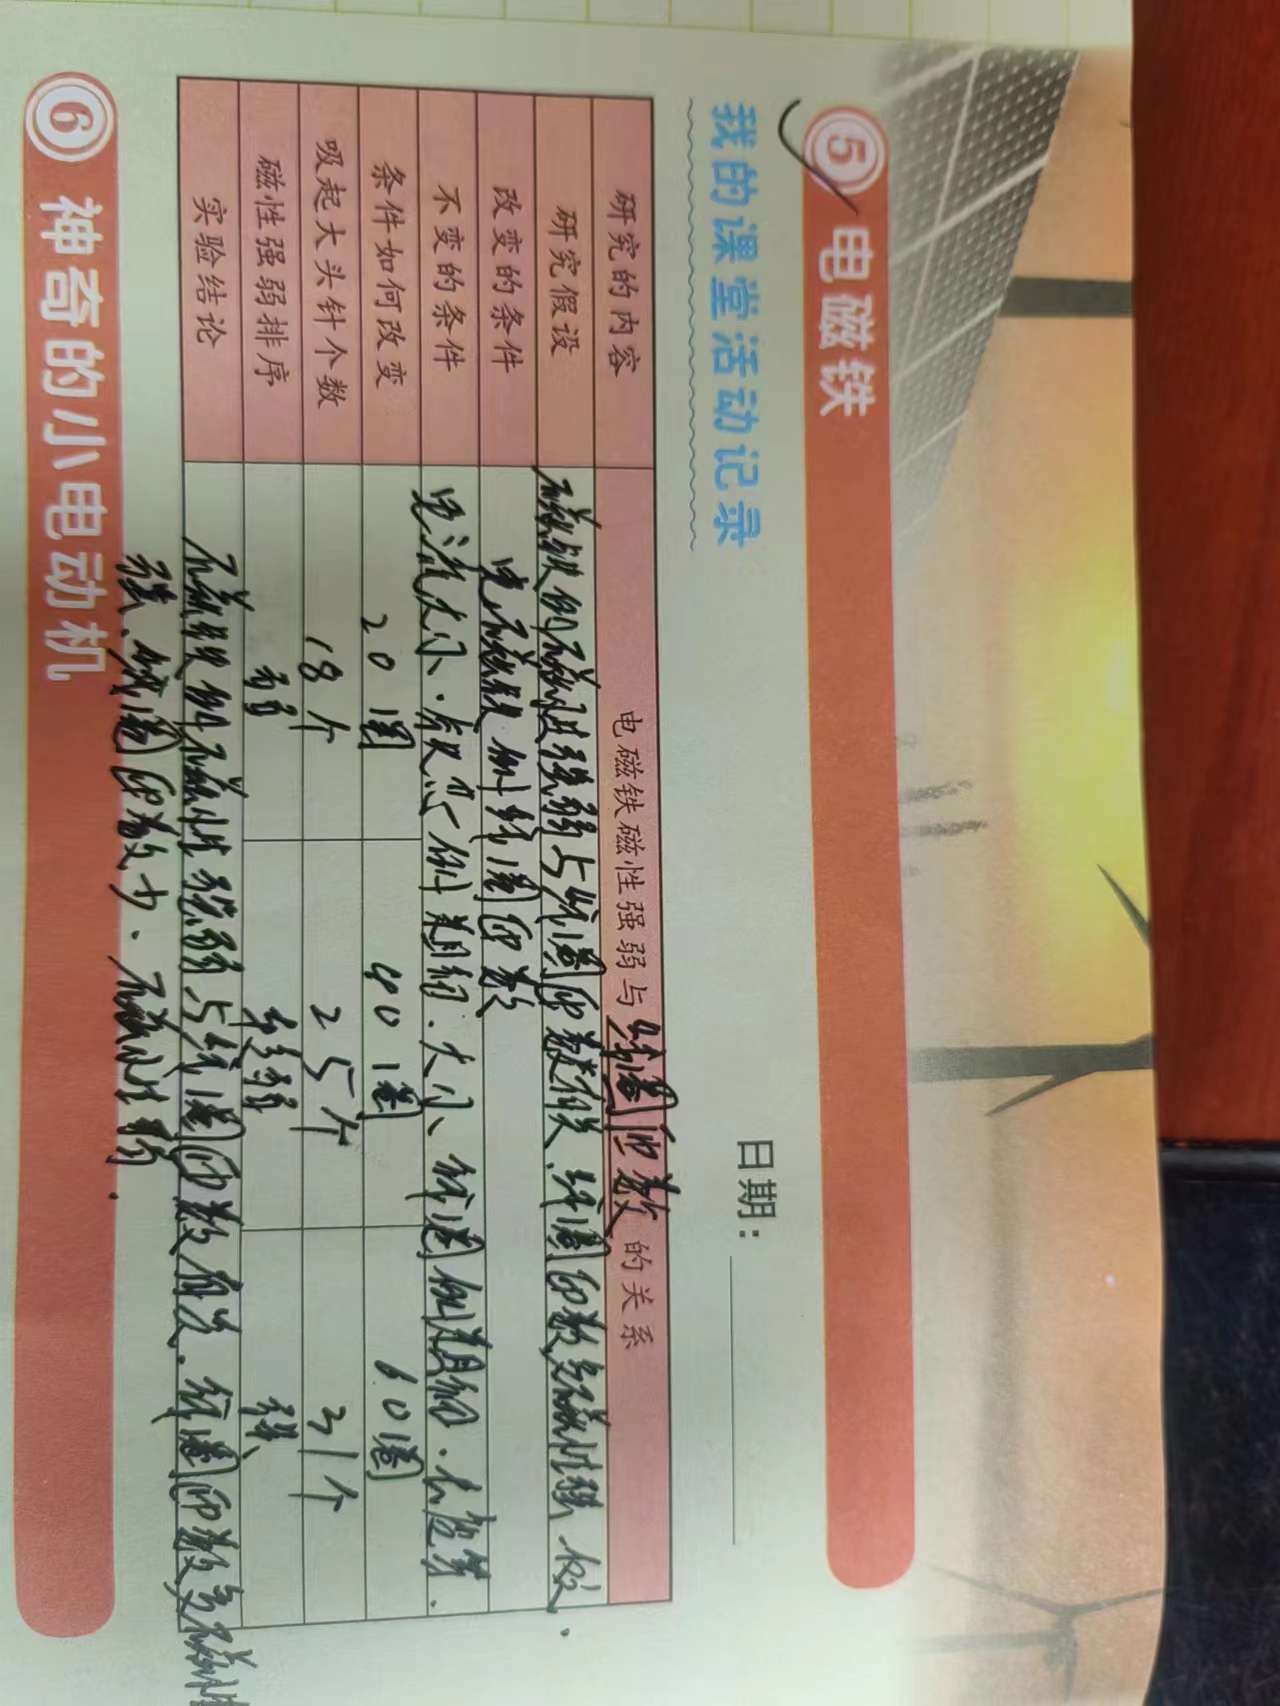 5 电磁铁
我的课堂活动记录
日期：
研究的内容 电磁铁磁性强弱与线圈匝数的关系
研究假设 磁铁的磁性强弱与线圈匝数有关、线圈匝数多磁性强
改变的条件 电磁铁的线圈匝数
不变的条件 电流大小、铁芯的粗细、大小、线圈的粗细、长度等.
条件如何改变 20圈 40圈 60圈
吸起大头针个数 18个 25个 31个
磁性强弱排序 弱 较弱 强
实验结论 磁铁的磁性强弱与线圈匝数有关.线圈匝数多磁性
强、线圈匝数少.磁性弱.
6 神奇的小电动机